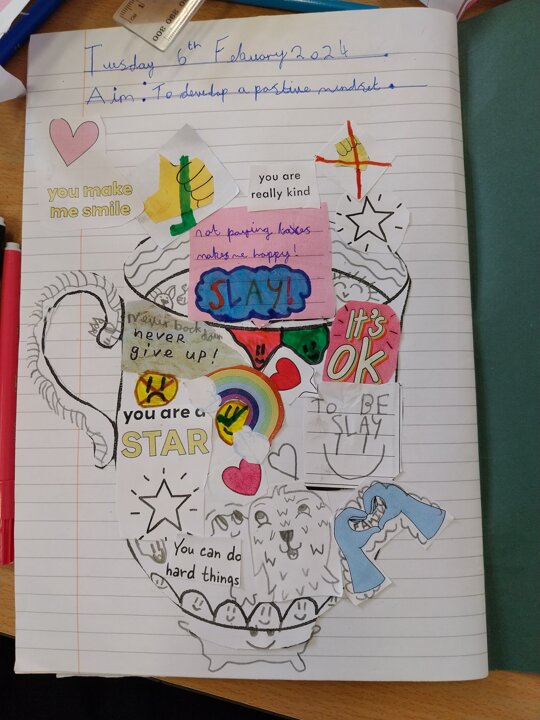 Tuesday 6th Febuary 2024
Aim: To develop a positive mindset.
you make
me smile
you are
really kind
not paying taxes
makes me happy!
SLAY!
Never back down
never
give up!
It's
OK
you are a
STAR
To BE
SLAY
FAMILY
You can do
hard things